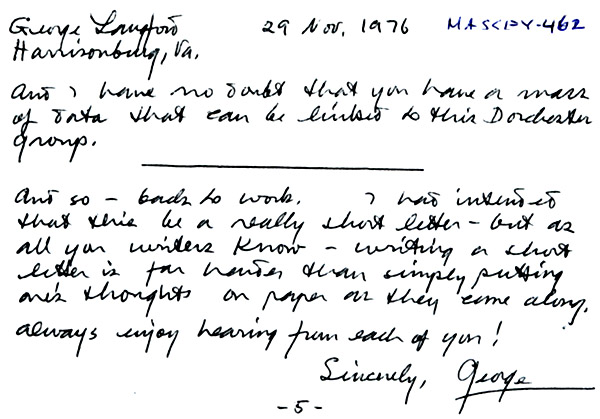 George Langford 29 Nov, 1976 MASKEY-462
Harrisonburg, Va.
And I have no doubt that you have a mass
of data that can be linked to this Dorchester
group.
And so - back to work. I had intended
that this be a really short letter - but as
all you writers know - writing a short
letter is far harder than simply putting
one's thoughts on paper as they come along.
Always enjoy hearing from each of you!
Sincerely, George
- 5 -